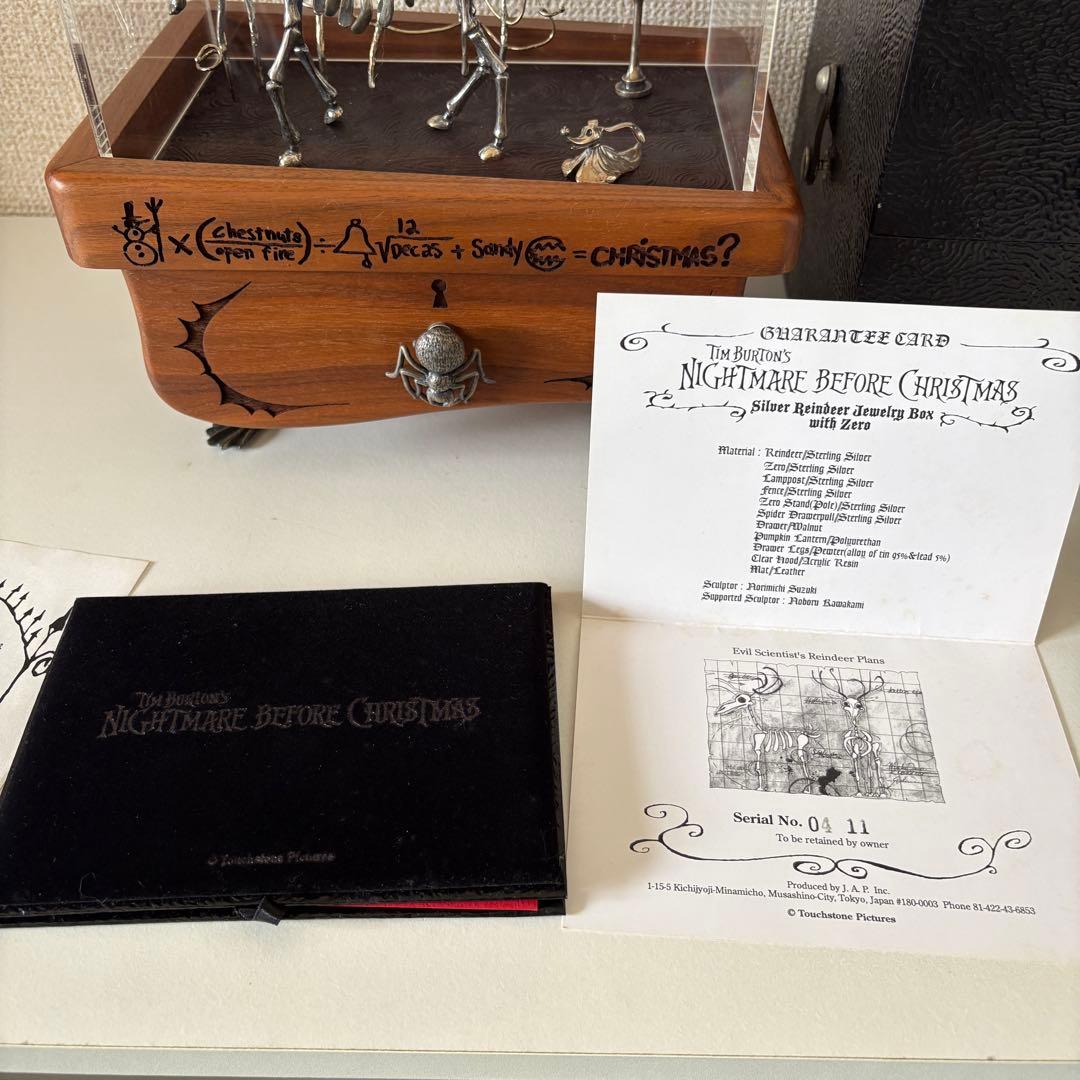 X (chestnuts
open fire) ÷ 12
√Decas + Sandy = CHRISTMAS?
GUARANTEE CARD
TIM BURTON'S
NIGHTMARE BEFORE CHRISTMAS
Silver Reindeer Jewelry Box
with Zero
Material : Reindeer/Sterling Silver
Zero/Sterling Silver
Lamppost/Sterling Silver
Fence/Sterling Silver
Zero Stand(Pole)/Sterling Silver
Spider Drawerpull/Sterling Silver
Drawer/Walnut
Pumpkin Lantern/Polyurethan
Drawer Legs/Pewter(alloy of tin 95%&lead 5%)
Clear Hood/Acrylic Resin
Mat/Leather
Sculptor : Norimichi Suzuki
Supported Sculptor : Noboru Kawakami
Evil Scientist's Reindeer Plans
Serial No. 04 11
To be retained by owner
Produced by J. A. P. Inc.
1-15-5 Kichijyoji-Minamicho, Musashino-City, Tokyo, Japan #180-0003 Phone 81-422-43-6853
© Touchstone Pictures
TIM BURTON'S
NIGHTMARE BEFORE CHRISTMAS
© Touchstone Pictures